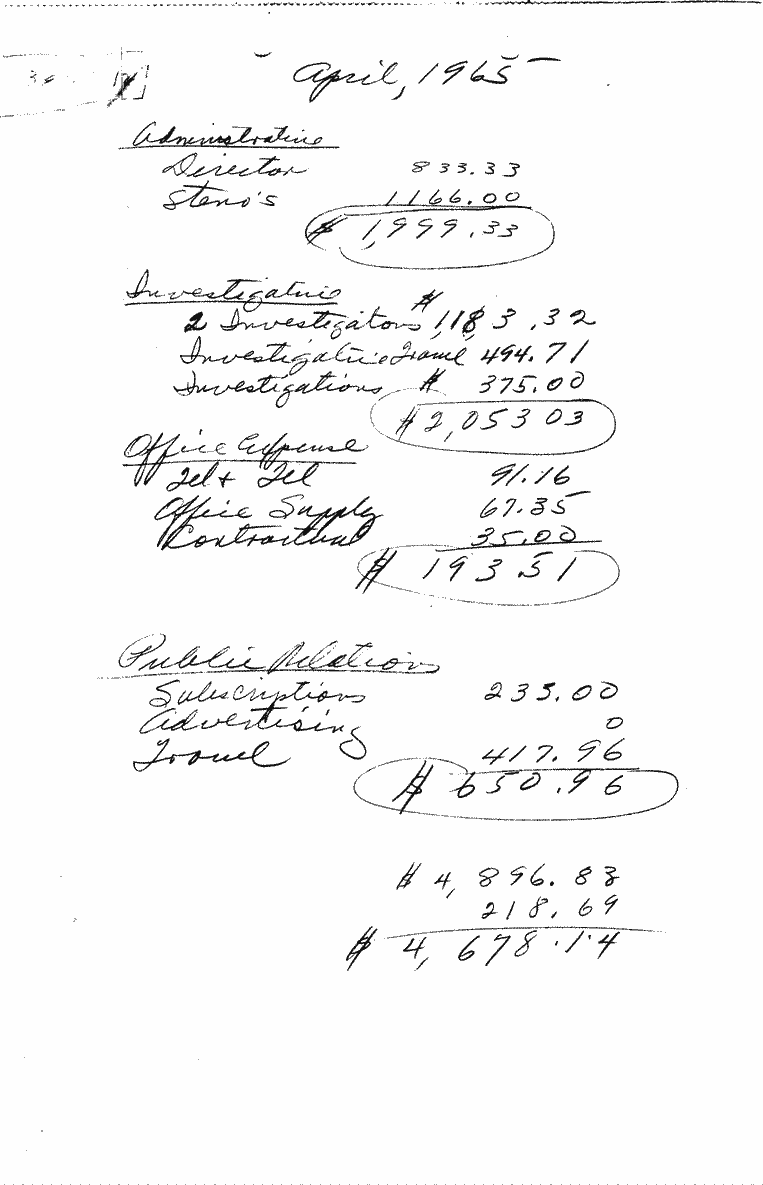 April, 1965
Administrative
Director 833.33
Steno's 1166.00
$ 1,999.33
Investigative
2 Investigators $ 1,183.32
Investigative Travel 494.71
Investigations $ 375.00
$ 2,053 03
Office Expense
Tel & Tel 91.16
Office Supply 67.35
Contractual 35.00
$ 193.51
Public Relations
Subscriptions 233.00
Advertising 0
Travel 417.96
$ 650.96
$ 4,896.83
218.69
$ 4,678.14